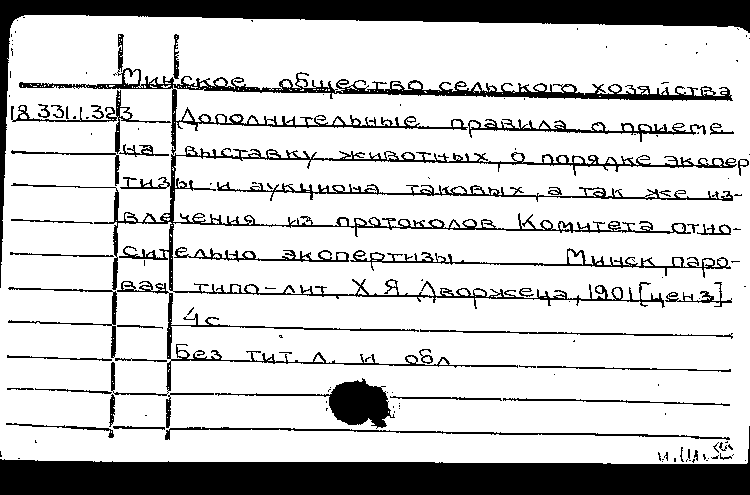 Минское общество сельского хозяйства
18.331.1.323 Дополнительные правила о приеме
на выставку животных, о порядке экспер
тизы и аукциона таковых, а так же из-
влечения из протоколов Комитета отно-
сительно экспертизы. Минск, паро-
вая типо-лит. Х.Я. Дворжеца, 1901 [ценз].
4с
Без тит. л. и обл